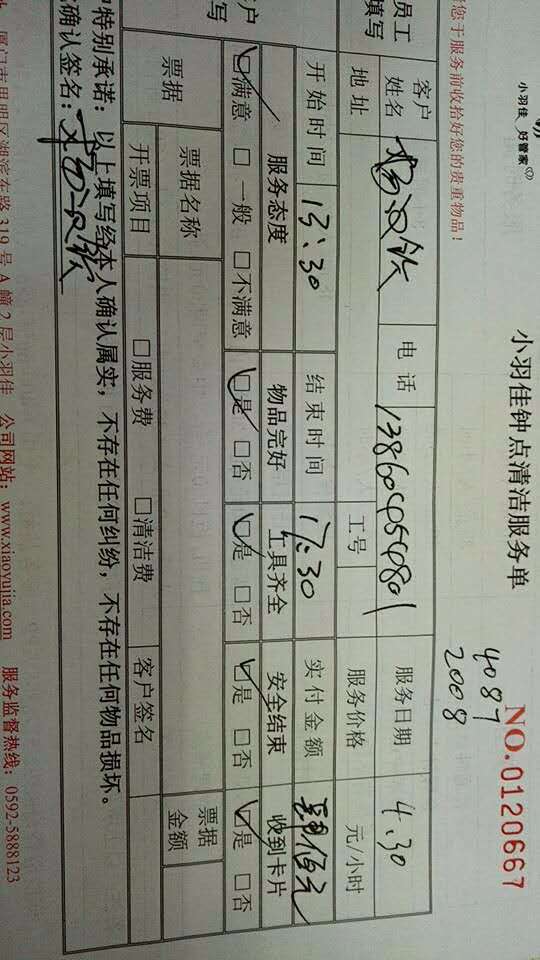 小羽佳 好管家
小羽佳钟点清洁服务单
NO.0120667
4087
2008
您于服务前收拾好您的贵重物品！
员工
填写
客户
姓名
电话
服务日期 4.30
地址
工号
服务价格 元/小时
开始时间 13:30 结束时间 17:30 实付金额
户
写
服务态度 物品完好 工具齐全 安全结束 收到卡片
☑满意 □一般 □不满意 ☑是 □否 ☑是 □否 ☑是 □否 ☑是 □否
票据
票据名称
开票项目 □服务费 □清洁费 客户签名
票据
金额
特别承诺：以上填写经本人确认属实，不存在任何纠纷，不存在任何物品损坏。
确认签名：
厦门市思明区湖滨东路 319 号 A 幢 2 层小羽佳 公司网站：www.xiaoyujia.com 服务监督热线：0592-5888123